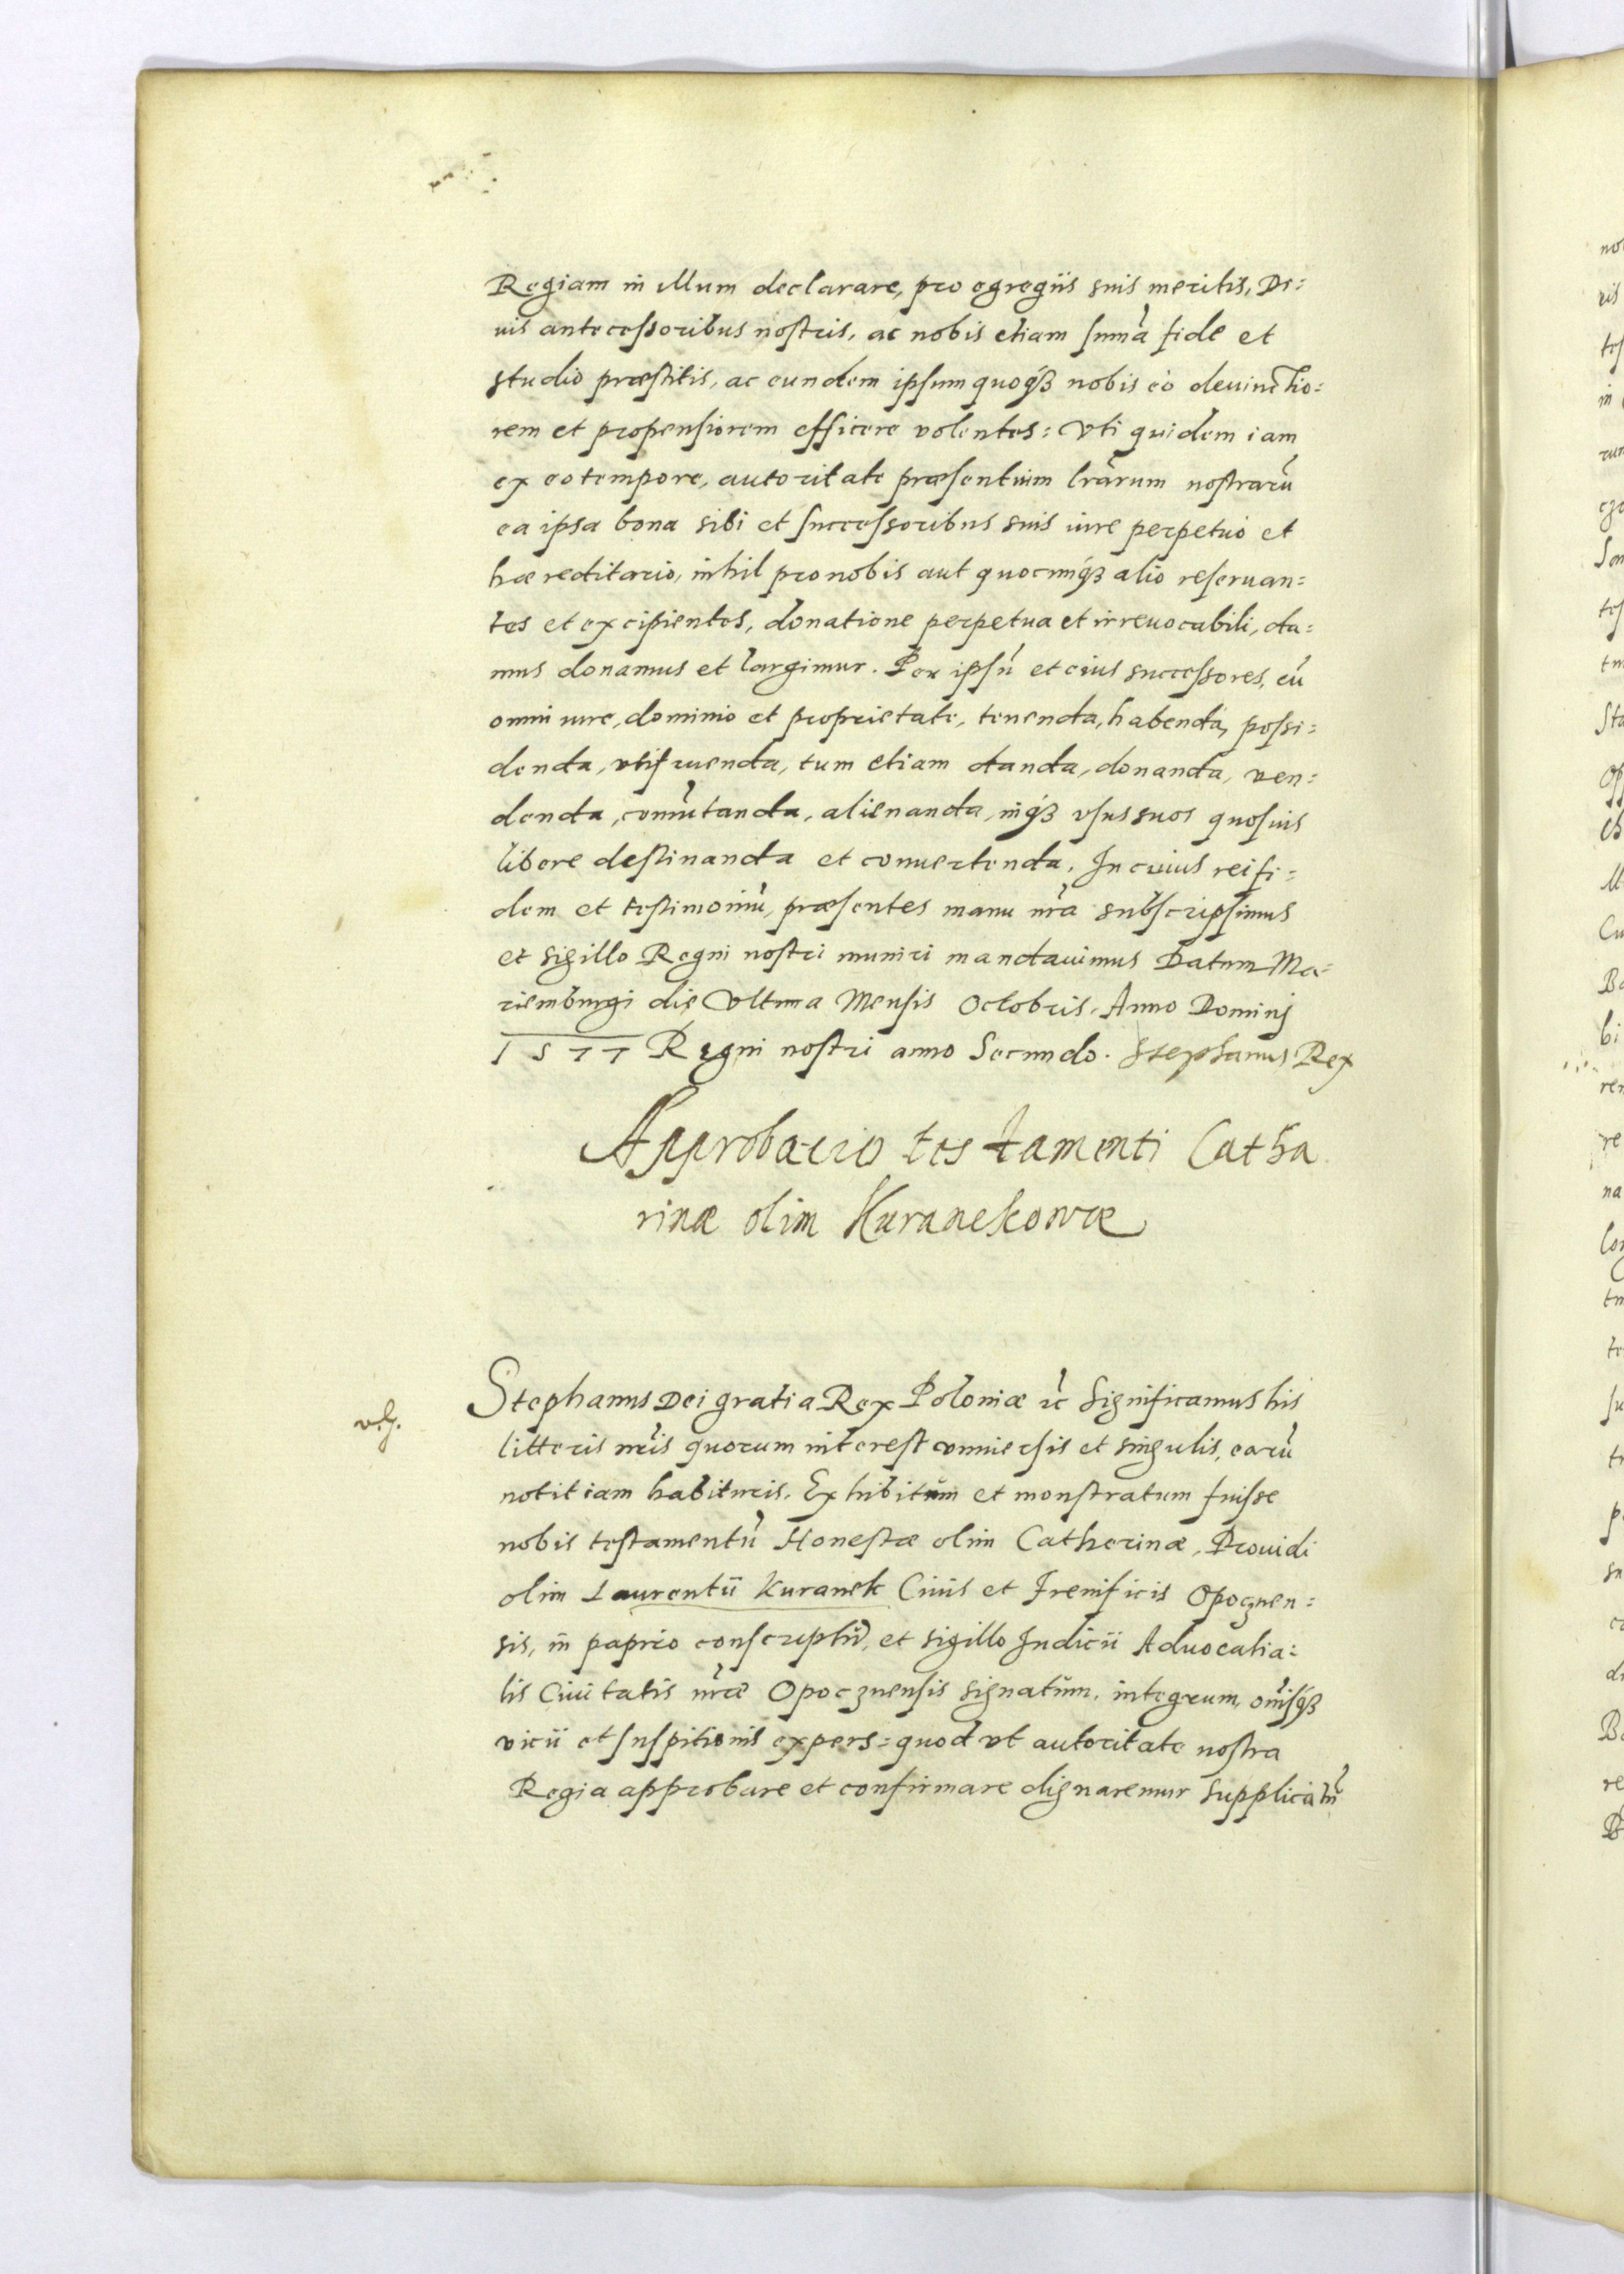 Regiam in illum declarare, pro egregiis suis meritis, Di=
uis antecessoribus nostris, ac nobis etiam sum̃a fide et
studio præstitis, ac eundem ipsum quoq3 nobis eò deuinctio=
rem et propensiorem efficere volentes: Vti quidem iam
ex eo tempore, autoritate præsentium lr̃arum nostrarũ
ea ipsa bona sibi et successoribus suis iure perpetuo et
hæreditario, nihil pro nobis aut quocunq3 alio reseruan=
tes et excipientes, donatione perpetua et irreuocabili, da=
mus donamus et largimur. Per ipsũ et eius successores, cũ
omni iure, dominio et proprietate, tenenda, habenda, possi=
denda, vtifruenda, tum etiam danda, donanda, ven=
denda, com̃utanda, alienanda, inq3 vsus suos quosuis
libere destinanda et conuertenda. In cuius rei fi=
dem et testimoniũ, præsentes manu nr̃a subscripsimus
et sigillo Regni nostri muniri mandauimus Datum Ma=
riemburgi die Vltima Mensis Octobris. Anno Dominj
1577 Regni nostri anno Secundo. Stephanus Rex
Approbacio testamenti Catha
rinæ olim Kuranekowæ
v.g.
Stephanus Dei gratia Rex Poloniæ ꝛc̃ Significamus his
litteris nr̃is quorum interest vniuersis et singulis, earũ
notitiam habituris. Exhibitum et monstratum fuisse
nobis testamentũ Honestæ olim Catherinæ, Prouidi
olim Laurentii Kuranek Ciuis et Frenificis Opocznen=
sis, in papiro conscriptũ, et sigillo Iudicii Aduocatia=
lis Ciuitatis nr̃æ Opocznensis signatum, integrum, om̃isq3
vicii et suspitionis expers: quod vt autoritate nostra
Regia approbare et confirmare dignaremur supplicatũ